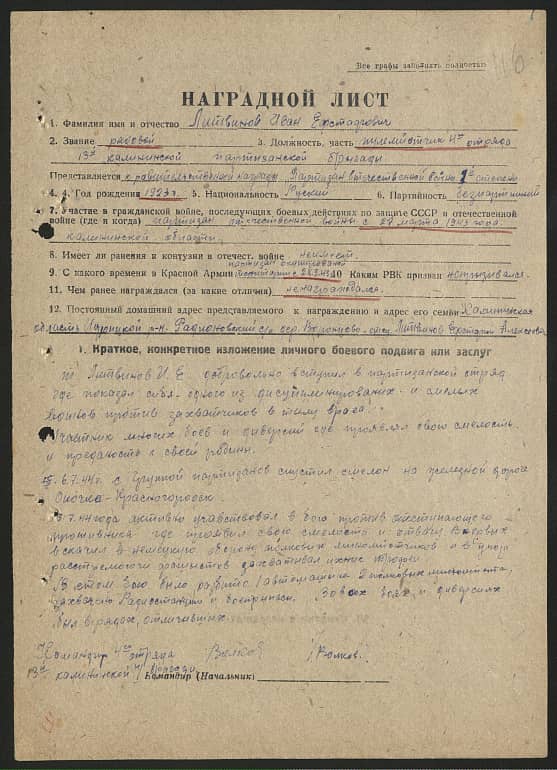 Все графы заполнять полностью
16
НАГРАДНОЙ ЛИСТ
1. Фамилия имя и отчество Литвинов Иван Евстафович
2. Звание рядовой 3. Должность, часть пулеметчик 4го отряда
13й калининской партизанской бригады
Представляется к правительственной награды Партизан отечественной войны 2й степени
4. 4. Год рождения 1923г. 5. Национальность Руский 6. Партийность безпартийный
7. Участие в гражданской войне, последующих боевых действиях по защите СССР и отечественной
войне (где и когда) партизан отечественной войны с 27 марта 1943 года.
калининской области.
8. Имеет ли ранения и контузии в отечест. войне неимеет
партизан
9. С какого времени в Красной Армии 10 Каким РВК призван непризывался.
11. Чем ранее награждался (за какие отличия) ненаграждался.
12. Постоянный домашний адрес представляемого к награждению и адрес его семьи Калининская
область р-н. Радионовский с/с дер. Литвинов
1. Краткое, конкретное изложение личного боевого подвига или заслуг
т Литвинов И. Е добровольно вступил в партизанский отряд
где показал себя одного из дисциплинированых и смелых
против захватчиков в тылу врага.
Участник многих боев и диверсий где проявлял свою смелость
и преданость к своей родины.
6.7.44г. с групой партизанов спустил эшелон на железной дороге
Опочка-Красногородск.
7.44 года активно учавствовал в бою против отступающего
противника где проявил свою смелость и отвагу. Впервых
вскочил в немецкую оборону полковых минометчиков и в упор
расстреливая фашистов захватывал ихние трофеи
В этом бою было разбито 1 автомашина 2 полковых миномета,
захвачено Радиостанция и боеприпасы. Во всех боях и диверсиях
был в рядах отличивших.
Командир 4го отряда Волков (Волков.)
13й калининской п/бригады Командир (Начальник)